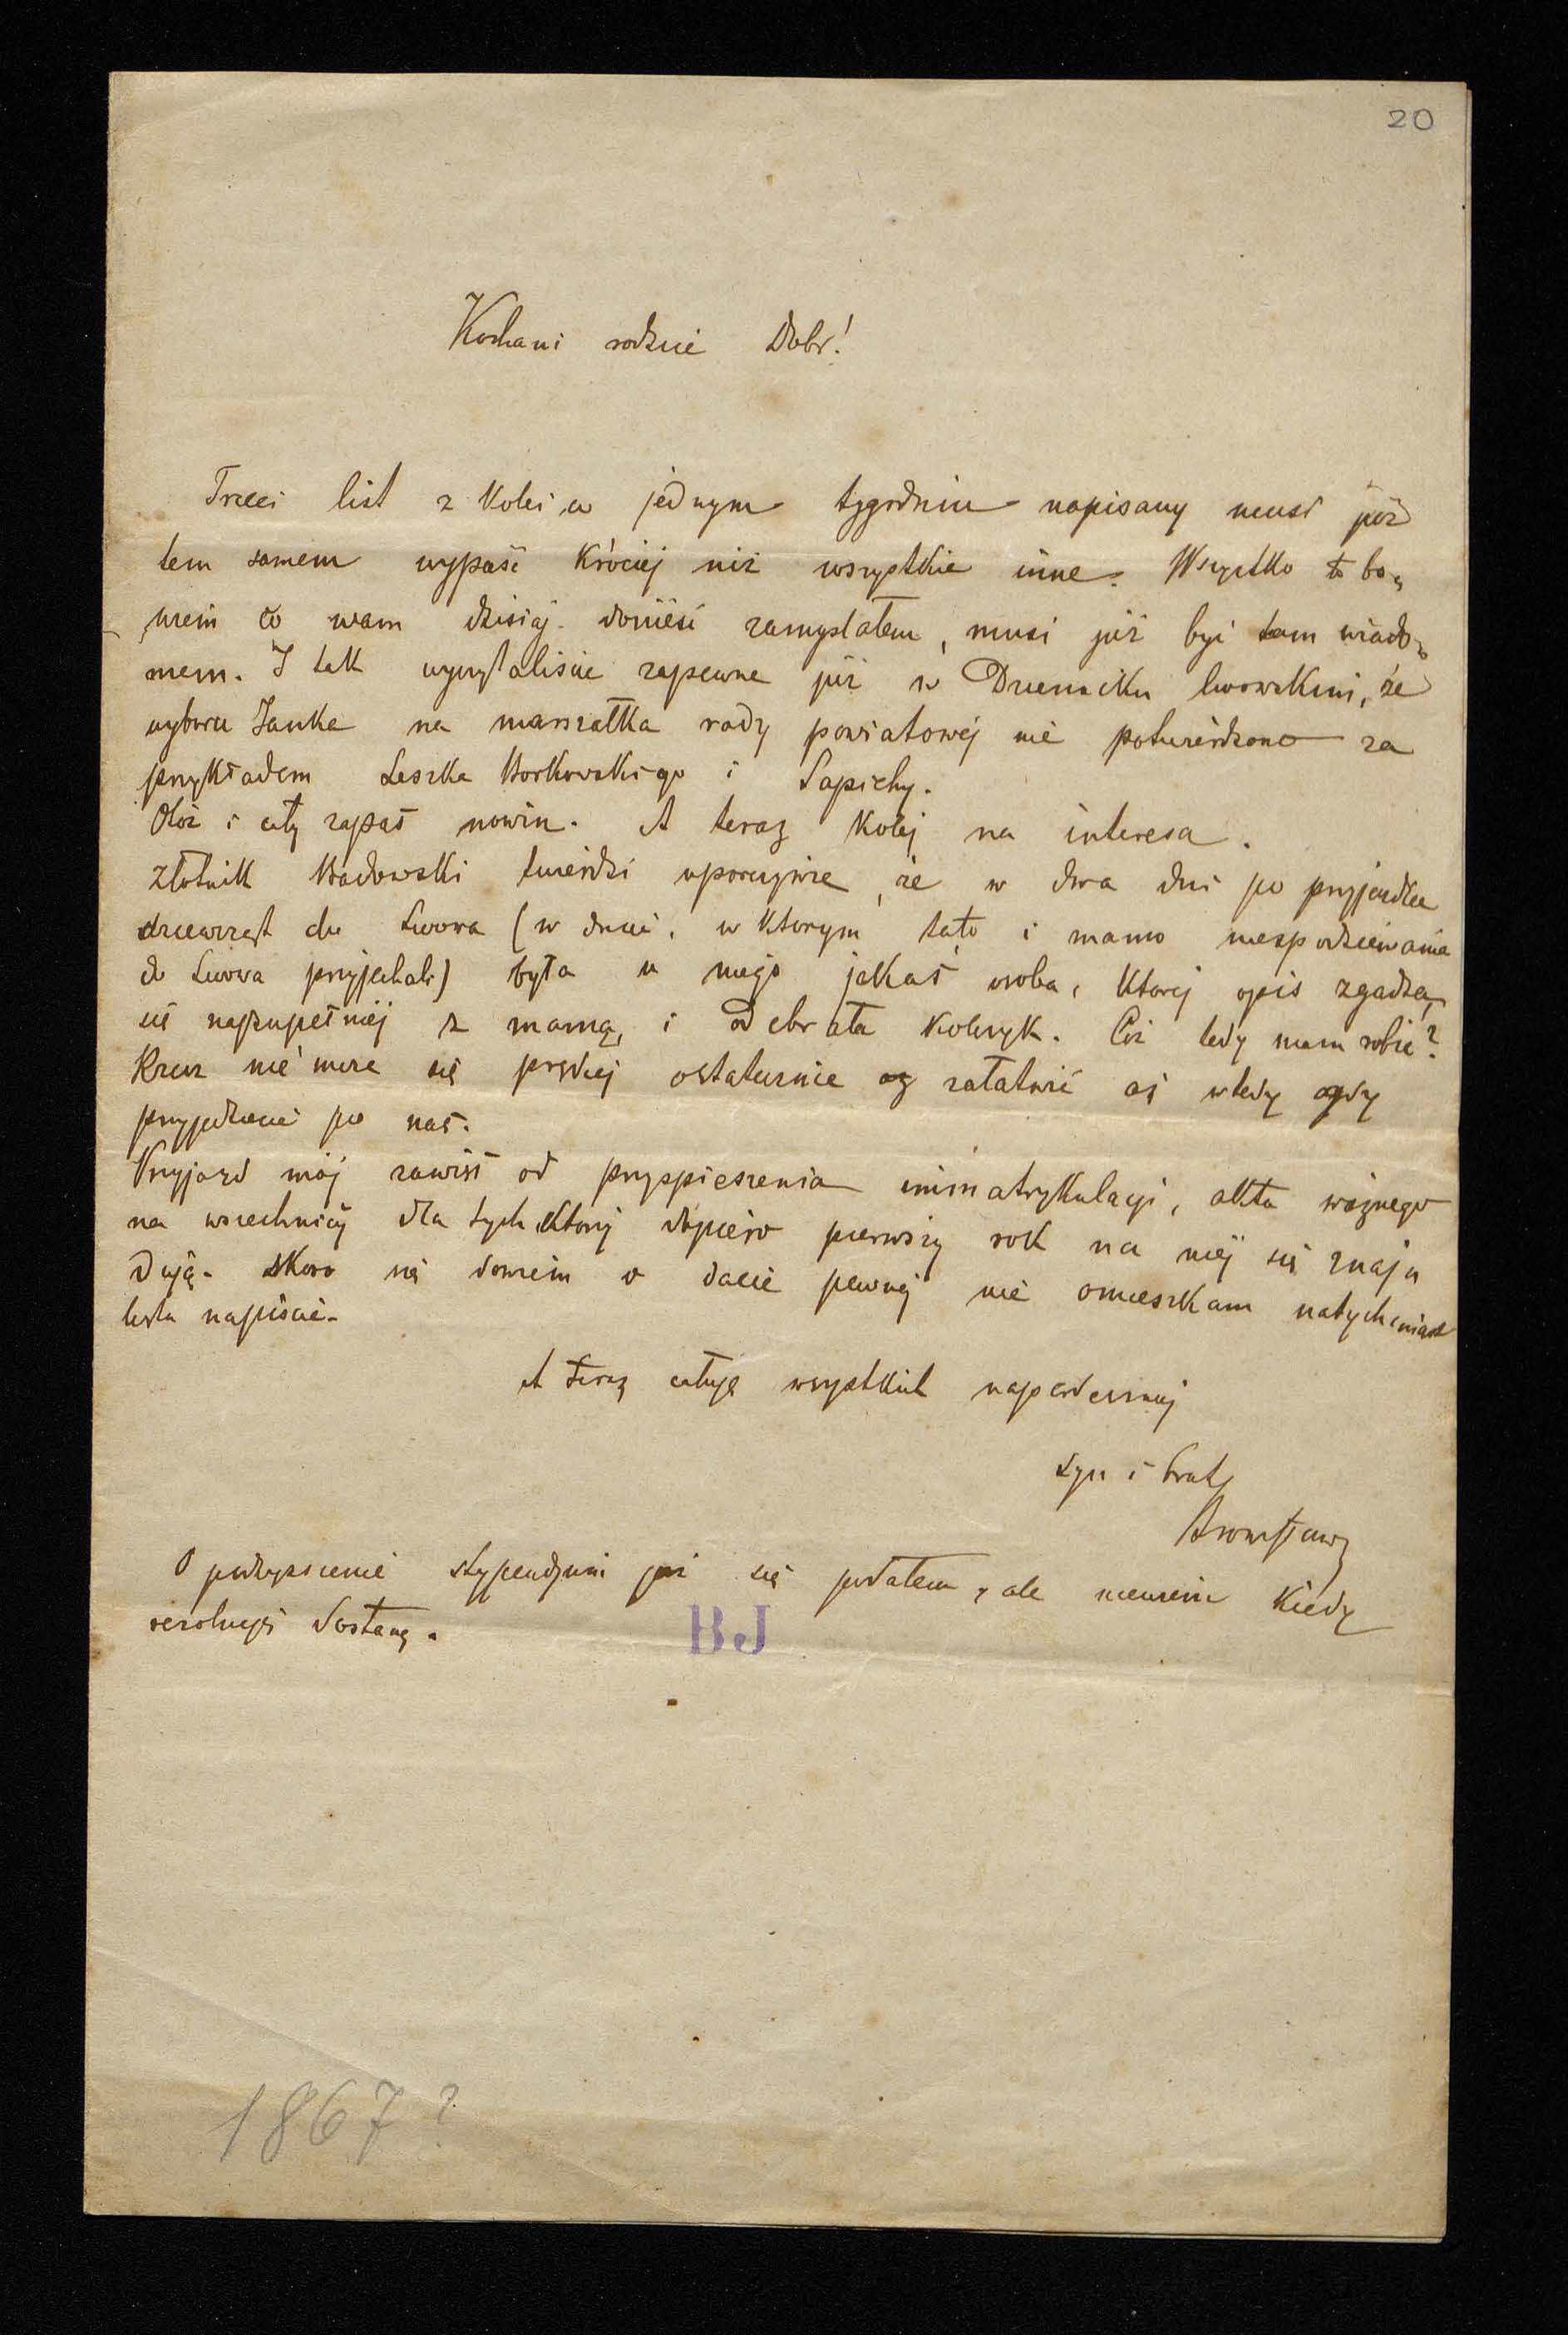 20
Kochani rodzice Dobr!
Trzeci list z kolei w jednym tygodniu napisany musi już
tem samem wypaść króciej niż wszystkie inne. Wszystko to bo„
wiem co wam dzisiaj donieść zamyślałem, musi już być tam wiado„
mem. I tak wyczytaliście zapewne już w Dzienniku lwowskim, że
wyboru Janka na marszałka rady powiatowej nie potwierdzono za
przykładem Leszka Borkowskiego i Sapiehy.
Otóż i cały zapas nowin. A teraz kolej na interesa.
Złotnik twierdzi uporczywie, że w dwa dni po przyjeździe
dziewcząt do Lwowa (w dniu, w którym tato i mama niespodziewanie
do Lwowa przyjechali) była u niego jakaś osoba, której opis zgadza
się najzupełniej z mamą, i odebrała kolczyk. Cóż tedy mam robić?
Rzecz nie może się prędzej ostatecznie załatwić aż wtedy gdy
przyjedziecie po nas.
Przyjazd mój zawisł od przyspieszenia immatrykulacji, aktu ważnego
na wszechnicy dla tych którzy dopiero pierwszy rok na niej się znaju
dują. Skoro się dowiem o dacie pewnej nie omieszkam natychmiast
listu napisać.
A teraz całuję wszystkich najserdeczniej
syn i brat
Bronisław
O podwyższenie stypendjum już się podałem, ale niewiem kiedy
rezolucję dostanę.
BJ
1867?